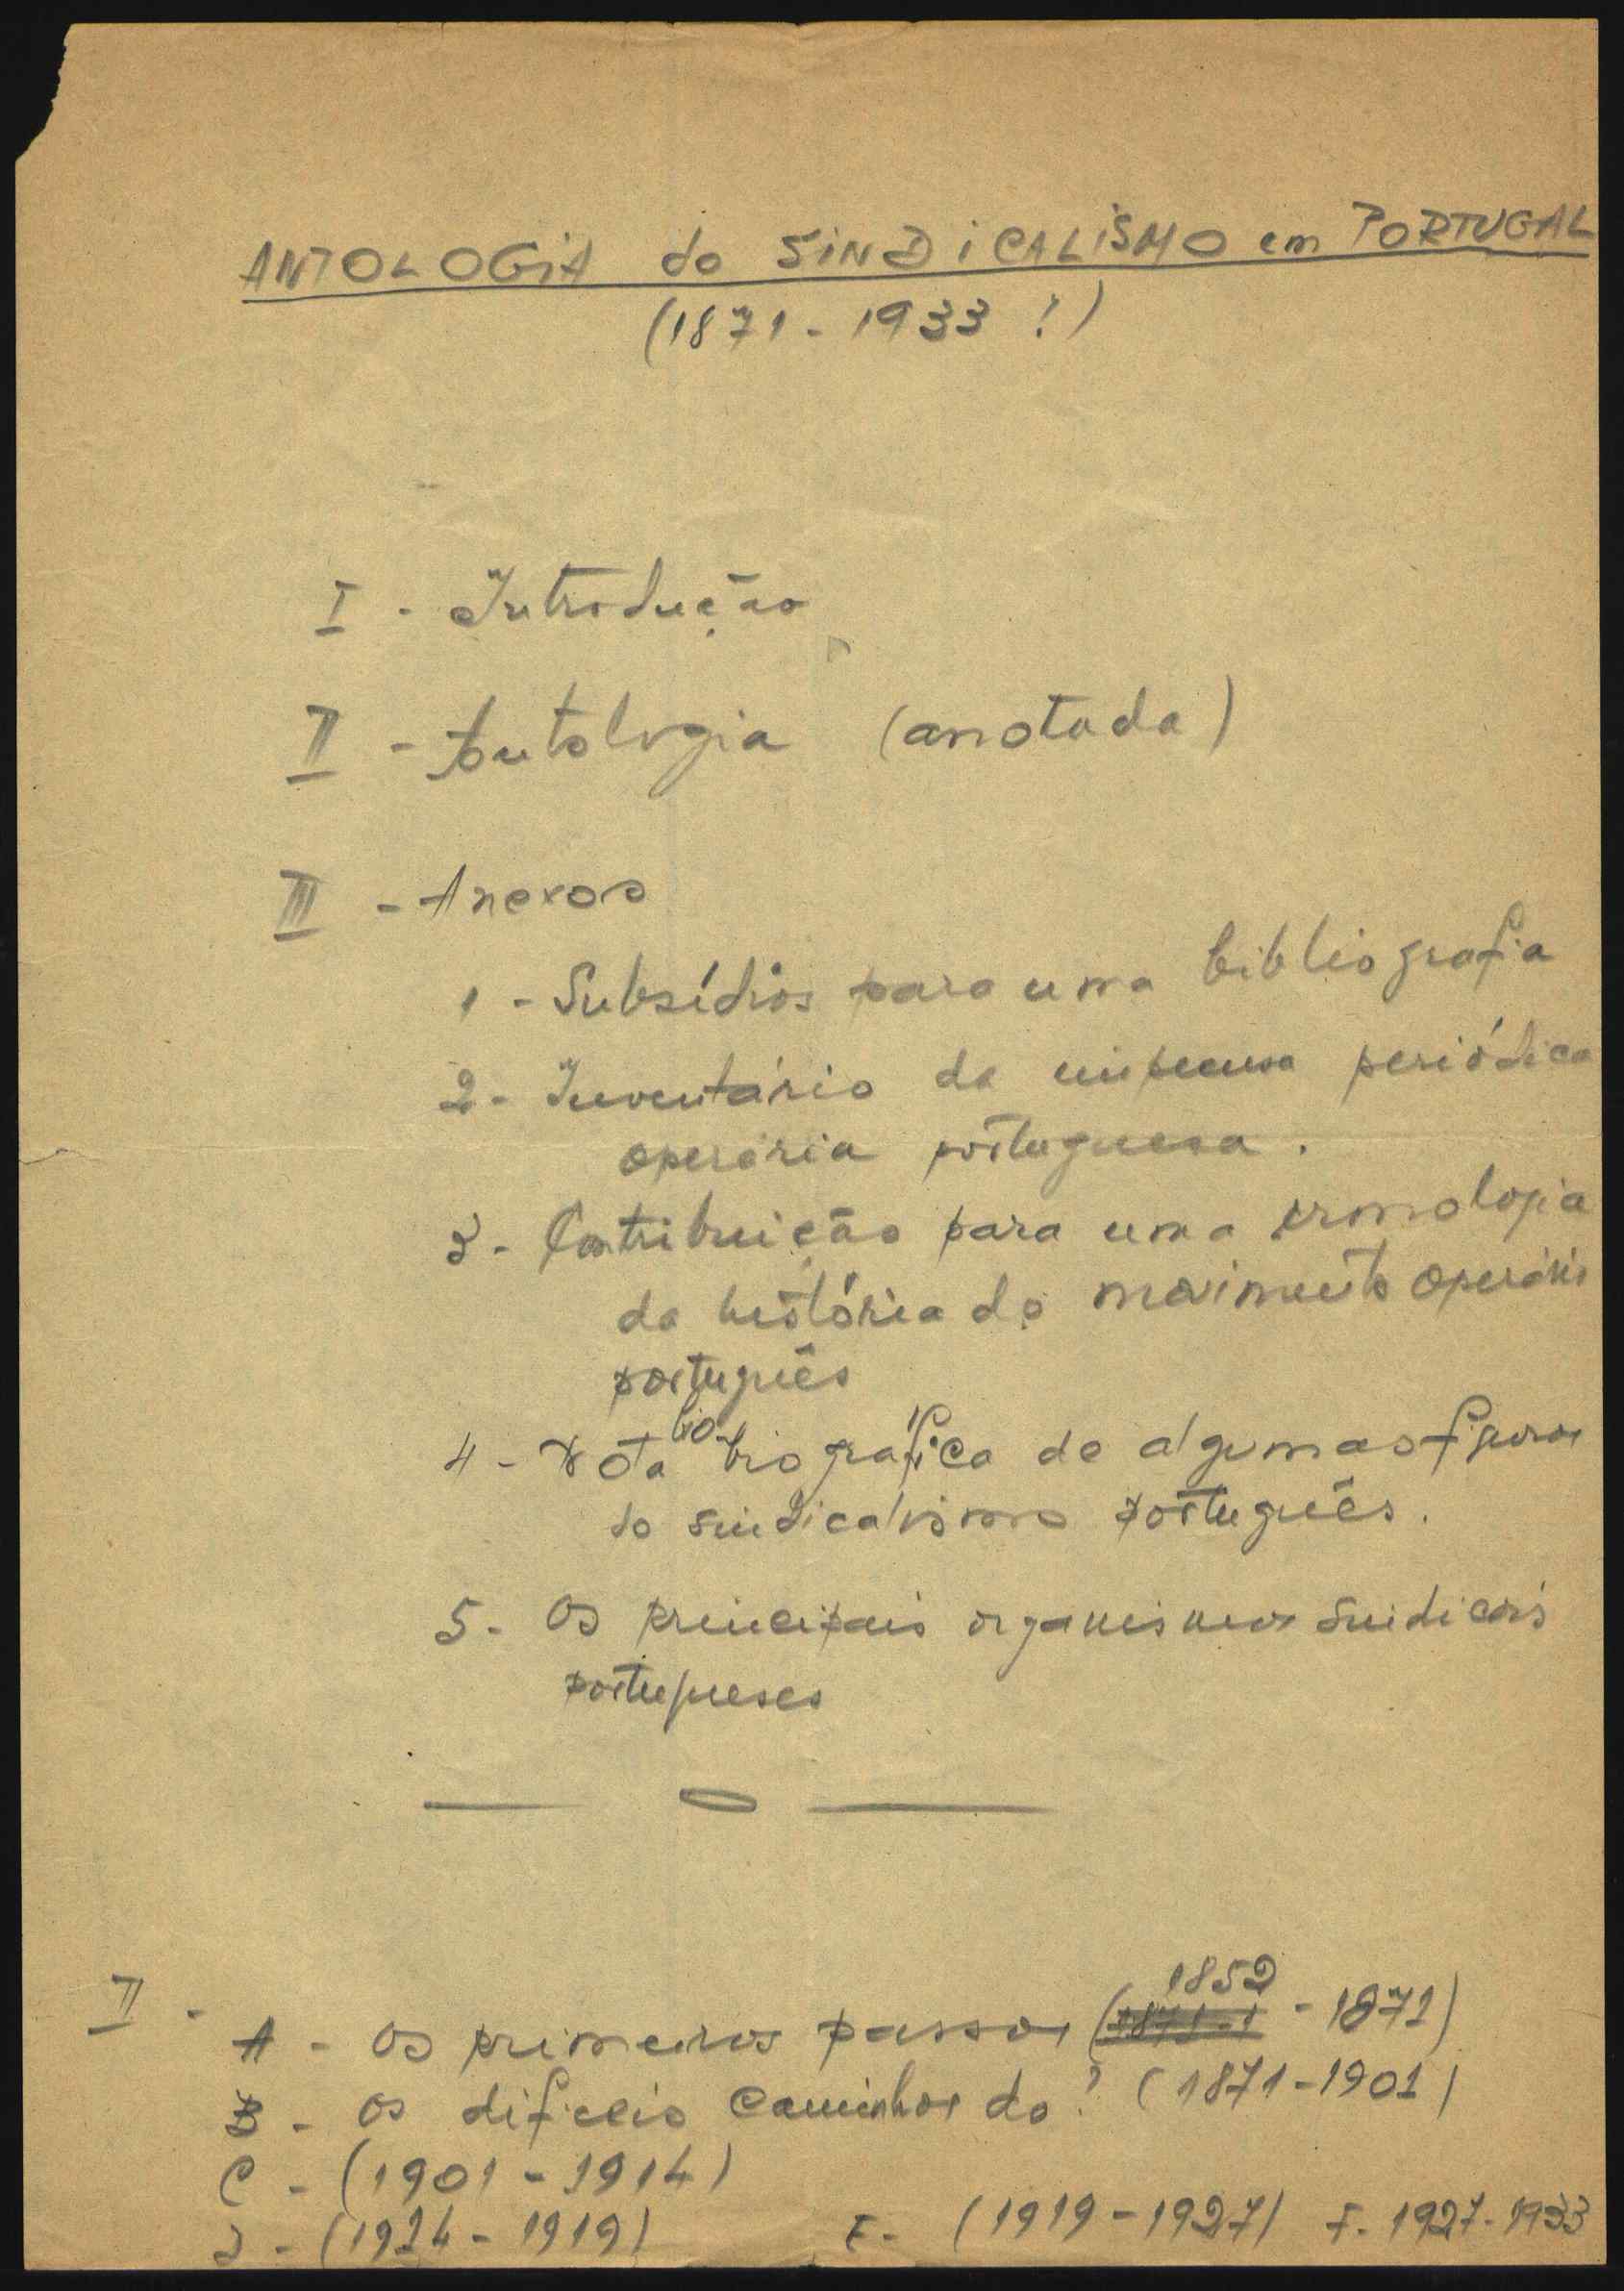 ANTOLOGIA do SINDICALISMO em PORTUGAL
(1871 - 1933 ?)
I - Introdução
II - Antologia (anotada)
III - Anexos
1 - Subsídios para uma bibliografia
2 - Inventário da imprensa periódica
operária portuguesa.
3 - Contribuição para uma cronologia
da história do movimento operário
português
4 - Nota bio-biográfica de algumas figuras
do sindicalismo português.
5 - Os principais organismos sindicais
portugueses
II -
1852
A - Os primeiros passos (1871 - 1 - 1871)
B - Os dificeis caminhos do ? (1871 - 1901)
C - (1901 - 1914)
D - (1914 - 1919) E - (1919 - 1927) F. 1927 - 1933